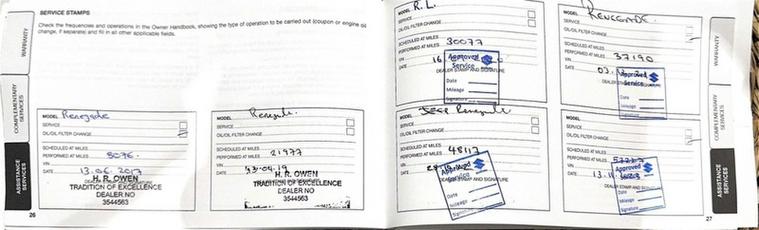 SERVICE STAMPS
Check the frequencies and operations in the Owner Handbook, showing the type of operation to be carried out (coupon or engine oil
change, if separate) and fill in all other applicable fields.
WARRANTY
COMPLEMENTARY
SERVICES
ASSISTANCE
SERVICES
MODEL Renegade
SERVICE
OIL/OIL FILTER CHANGE
SCHEDULED AT MILES
PERFORMED AT MILES 8076
VIN
DATE 13.06.2017
H. R. OWEN
TRADITION OF EXCELLENCE
DEALER NO
3544563
MODEL Renegade
SERVICE
OIL/OIL FILTER CHANGE
SCHEDULED AT MILES
PERFORMED AT MILES 21977
VIN
DATE
H. R. OWEN
TRADITION OF EXCELLENCE
DEALER NO
3544563
26
MODEL R.L.
SERVICE
OIL/OIL FILTER CHANGE
SCHEDULED AT MILES 30077
PERFORMED AT MILES
VIN
DATE 16
DEALER STAMP AND SIGNATURE
Approved
Service
Date
Mileage
Signature
MODEL RENEGADE
SERVICE
OIL/OIL FILTER CHANGE
SCHEDULED AT MILES
PERFORMED AT MILES 37190
VIN
DATE
Approved
Service
Date
Mileage
Signature
MODEL Jeep Renegade
SERVICE
OIL/OIL FILTER CHANGE
SCHEDULED AT MILES
PERFORMED AT MILES 48117
VIN
DATE
DEALER STAMP AND SIGNATURE
Approved
Service
Date
Mileage
Signature
MODEL
SERVICE
OIL/OIL FILTER CHANGE
SCHEDULED AT MILES
PERFORMED AT MILES
VIN
DATE 13.11.2023
DEALER STAMP AND SIGNATURE
Approved
Service
Date
Mileage
Signature
WARRANTY
COMPLEMENTARY
SERVICES
ASSISTANCE
SERVICES
27